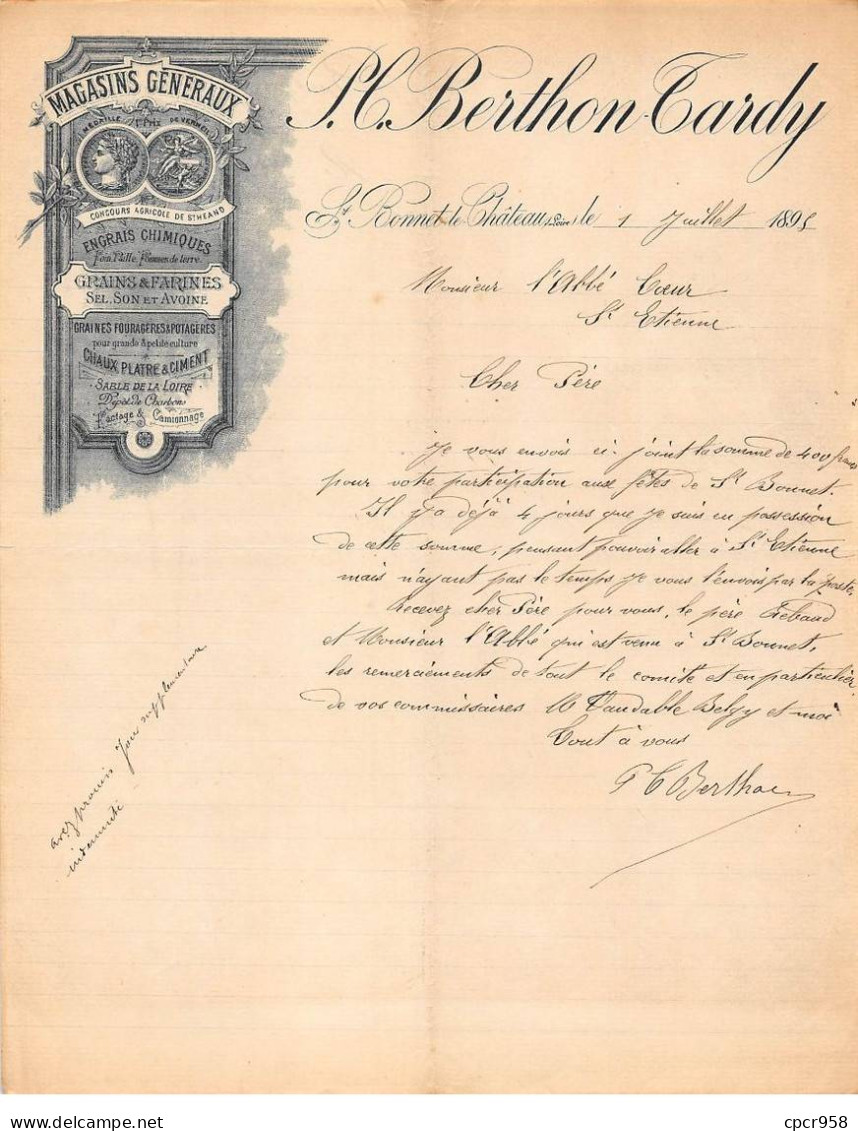 MAGASINS GÉNÉRAUX
MÉDAILLE 1er PRIX DE VERMEIL
CONCOURS AGRICOLE DE ST HEAND
ENGRAIS CHIMIQUES
Foin, Paille, Pommes de terre.
GRAINS & FARINES
SEL, SON ET AVOINE
GRAINES FOURAGÈRES & POTAGÈRES
pour grande & petite culture
CHAUX, PLATRE & CIMENT
SABLE DE LA LOIRE
Dépôt de Charbons
Factage & Camionnage
P.C. Berthon-Tardy
St Bonnet-le-Château, (Loire), le 1 Juillet 1895
Monsieur l'Abbé Cœur
St Etienne
Cher Père
Je vous envois ci-joint la somme de 400 francs
pour votre participation aux fêtes de St Bonnet.
Il y a déjà 4 jours que je suis en possession
de cette somme, pensant pouvoir aller à St Etienne
mais n'ayant pas le temps je vous l'envois par la poste.
Recevez cher Père pour vous, le père
et Monsieur l'Abbé qui est venu à St Bonnet,
les remerciements de tout le comité et en particulier
de vos commissaires M Vandable Belgy et moi
Tout à vous
P C Berthon
avez promis Jour supplémentaire
indemnité
cpcr958